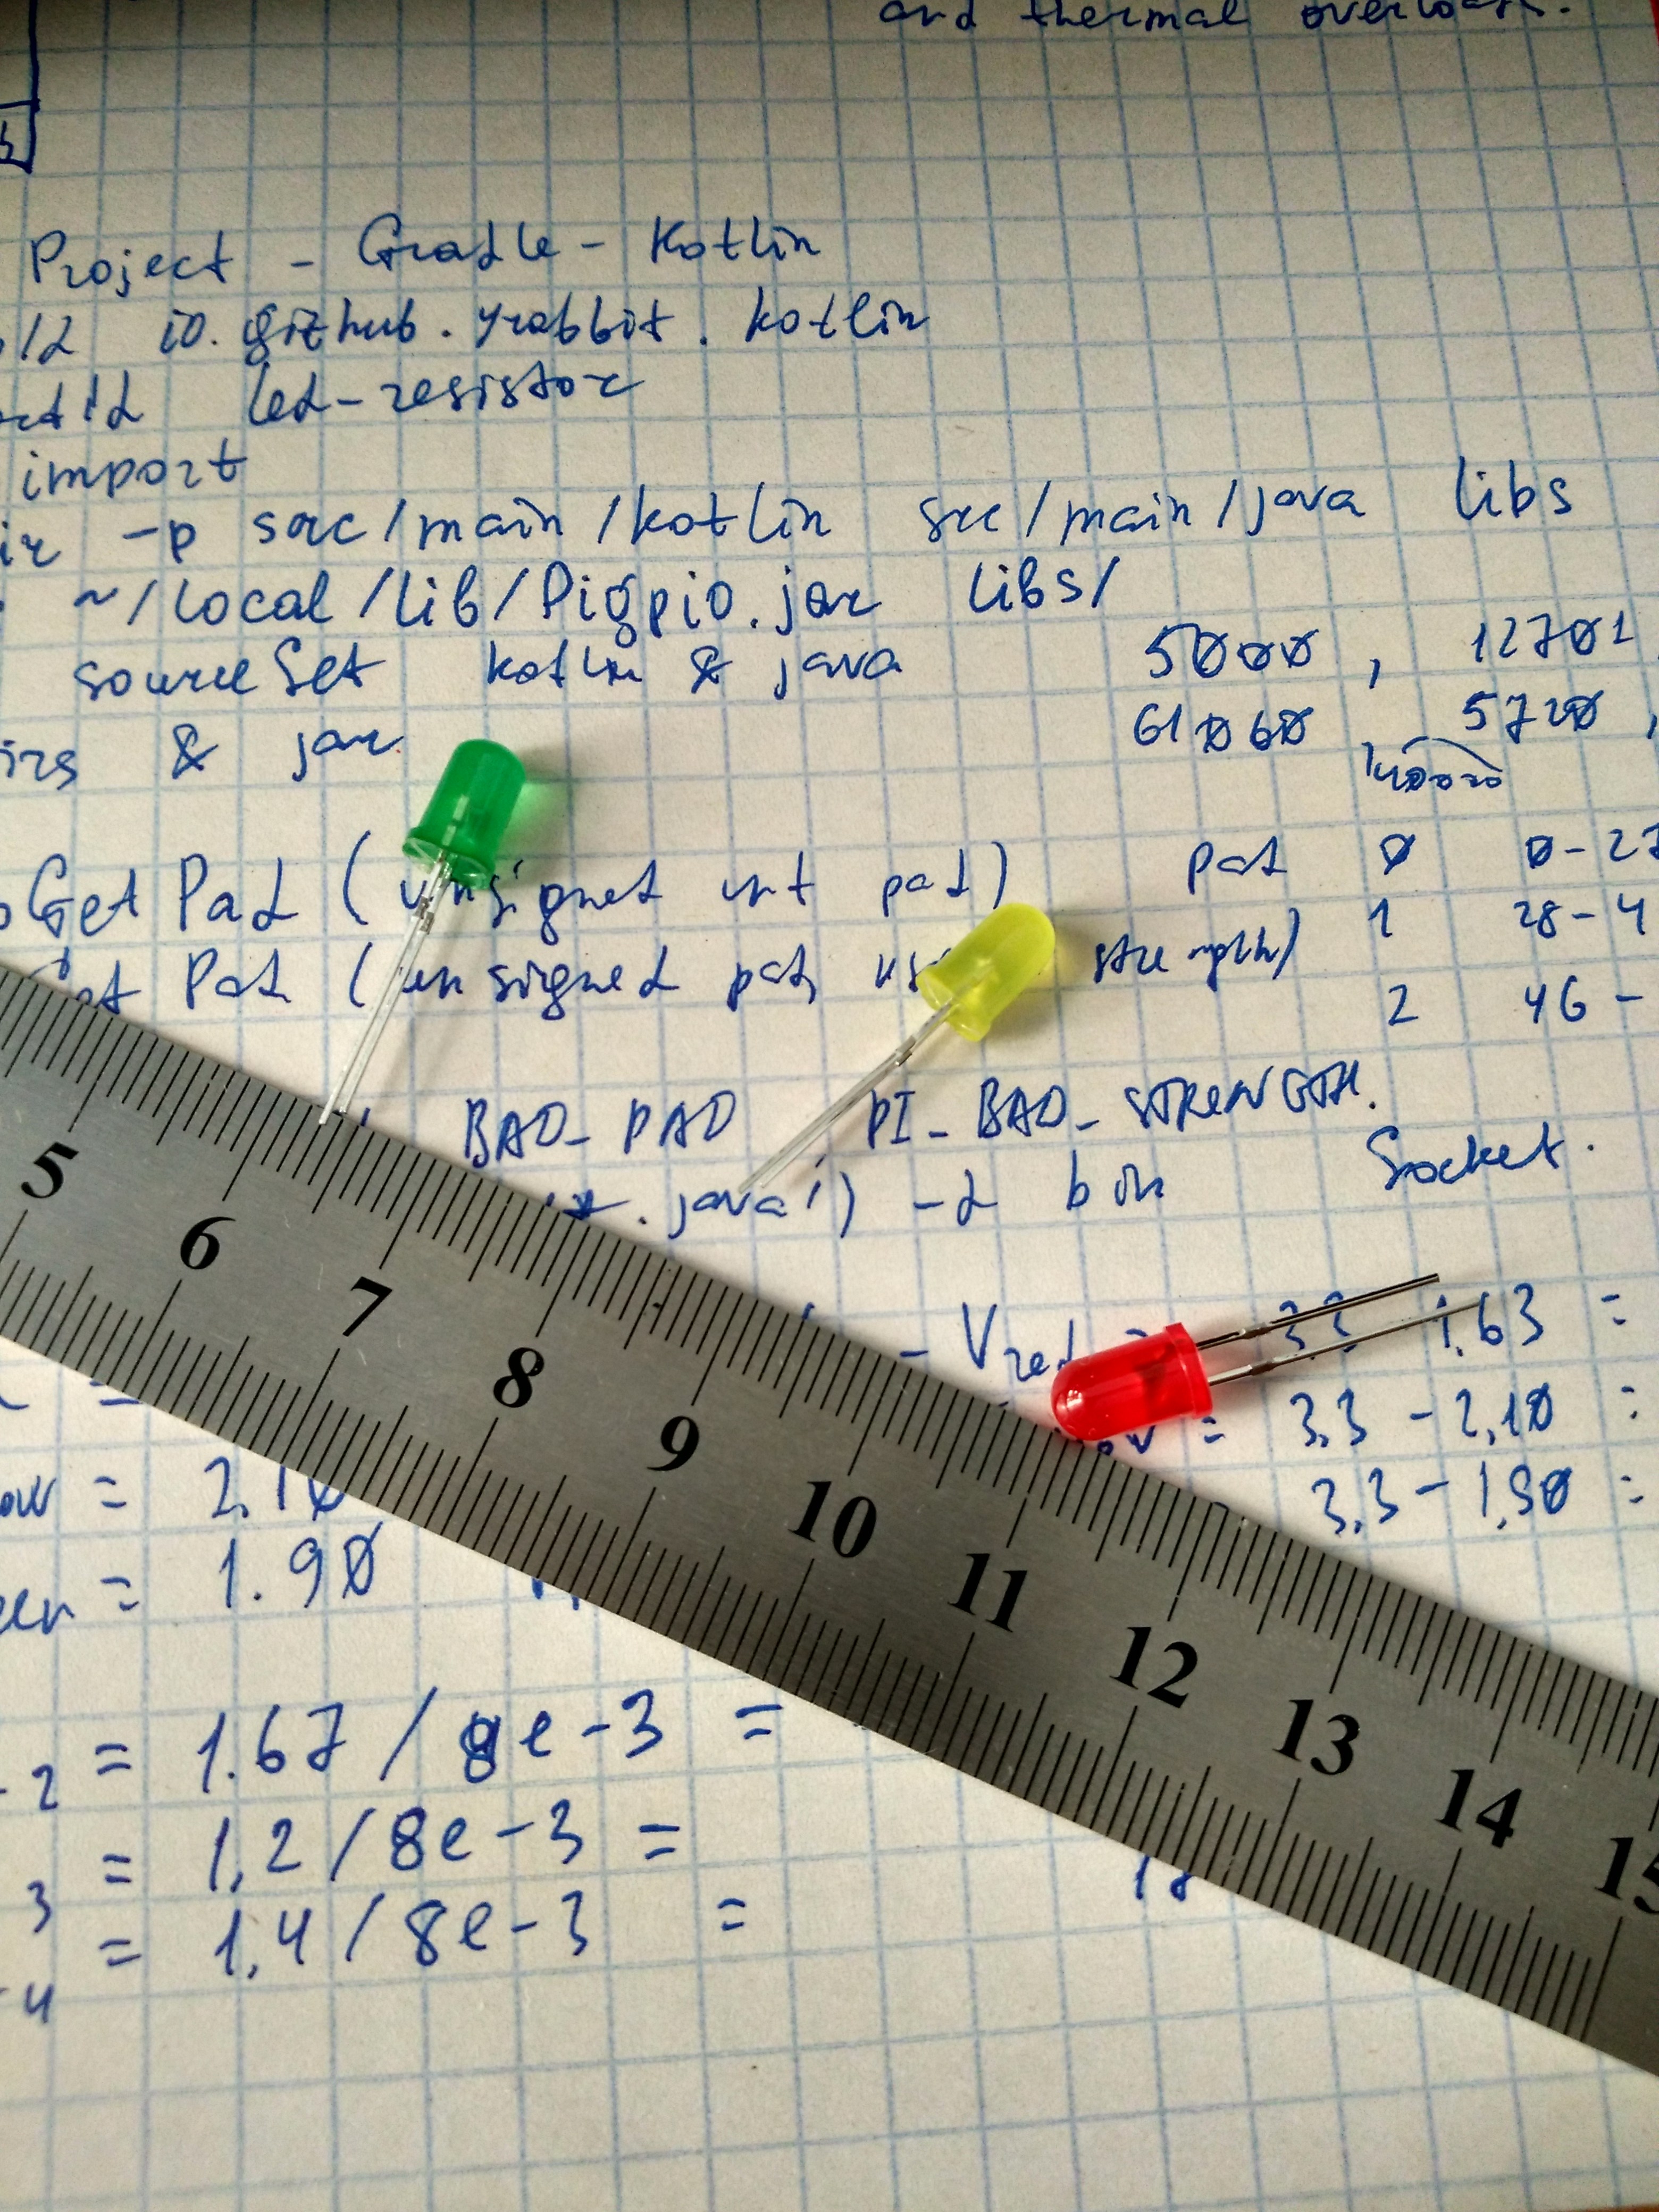 and thermal overload.
Project - Gradle - Kotlin
io.github.yrabbit.kotlin
led-resistor
import
-p src/main/kotlin src/main/java libs
~/local/lib/Pigpio.jar libs/
sourceSet kotlin & java
5000, 12701
61060, 5720,
& jar
GetPad (unsigned int pad) pad 0 0-27
Pad (unsigned pad, strength) 1 28-4
2 46-
BAD_PAD PI_BAD_STRENGTH.
.java') -d bin Socket.
5 6 7 8 9 10 11 12 13 14 15
- Vred = 3.3 1.63 =
= 3.3 - 2,10 =
3.3 - 1,90 =
= 2.10
= 1.90
2 = 1.67 / 8e-3 =
3 = 1,2 / 8e-3 =
4 = 1,4 / 8e-3 =
18